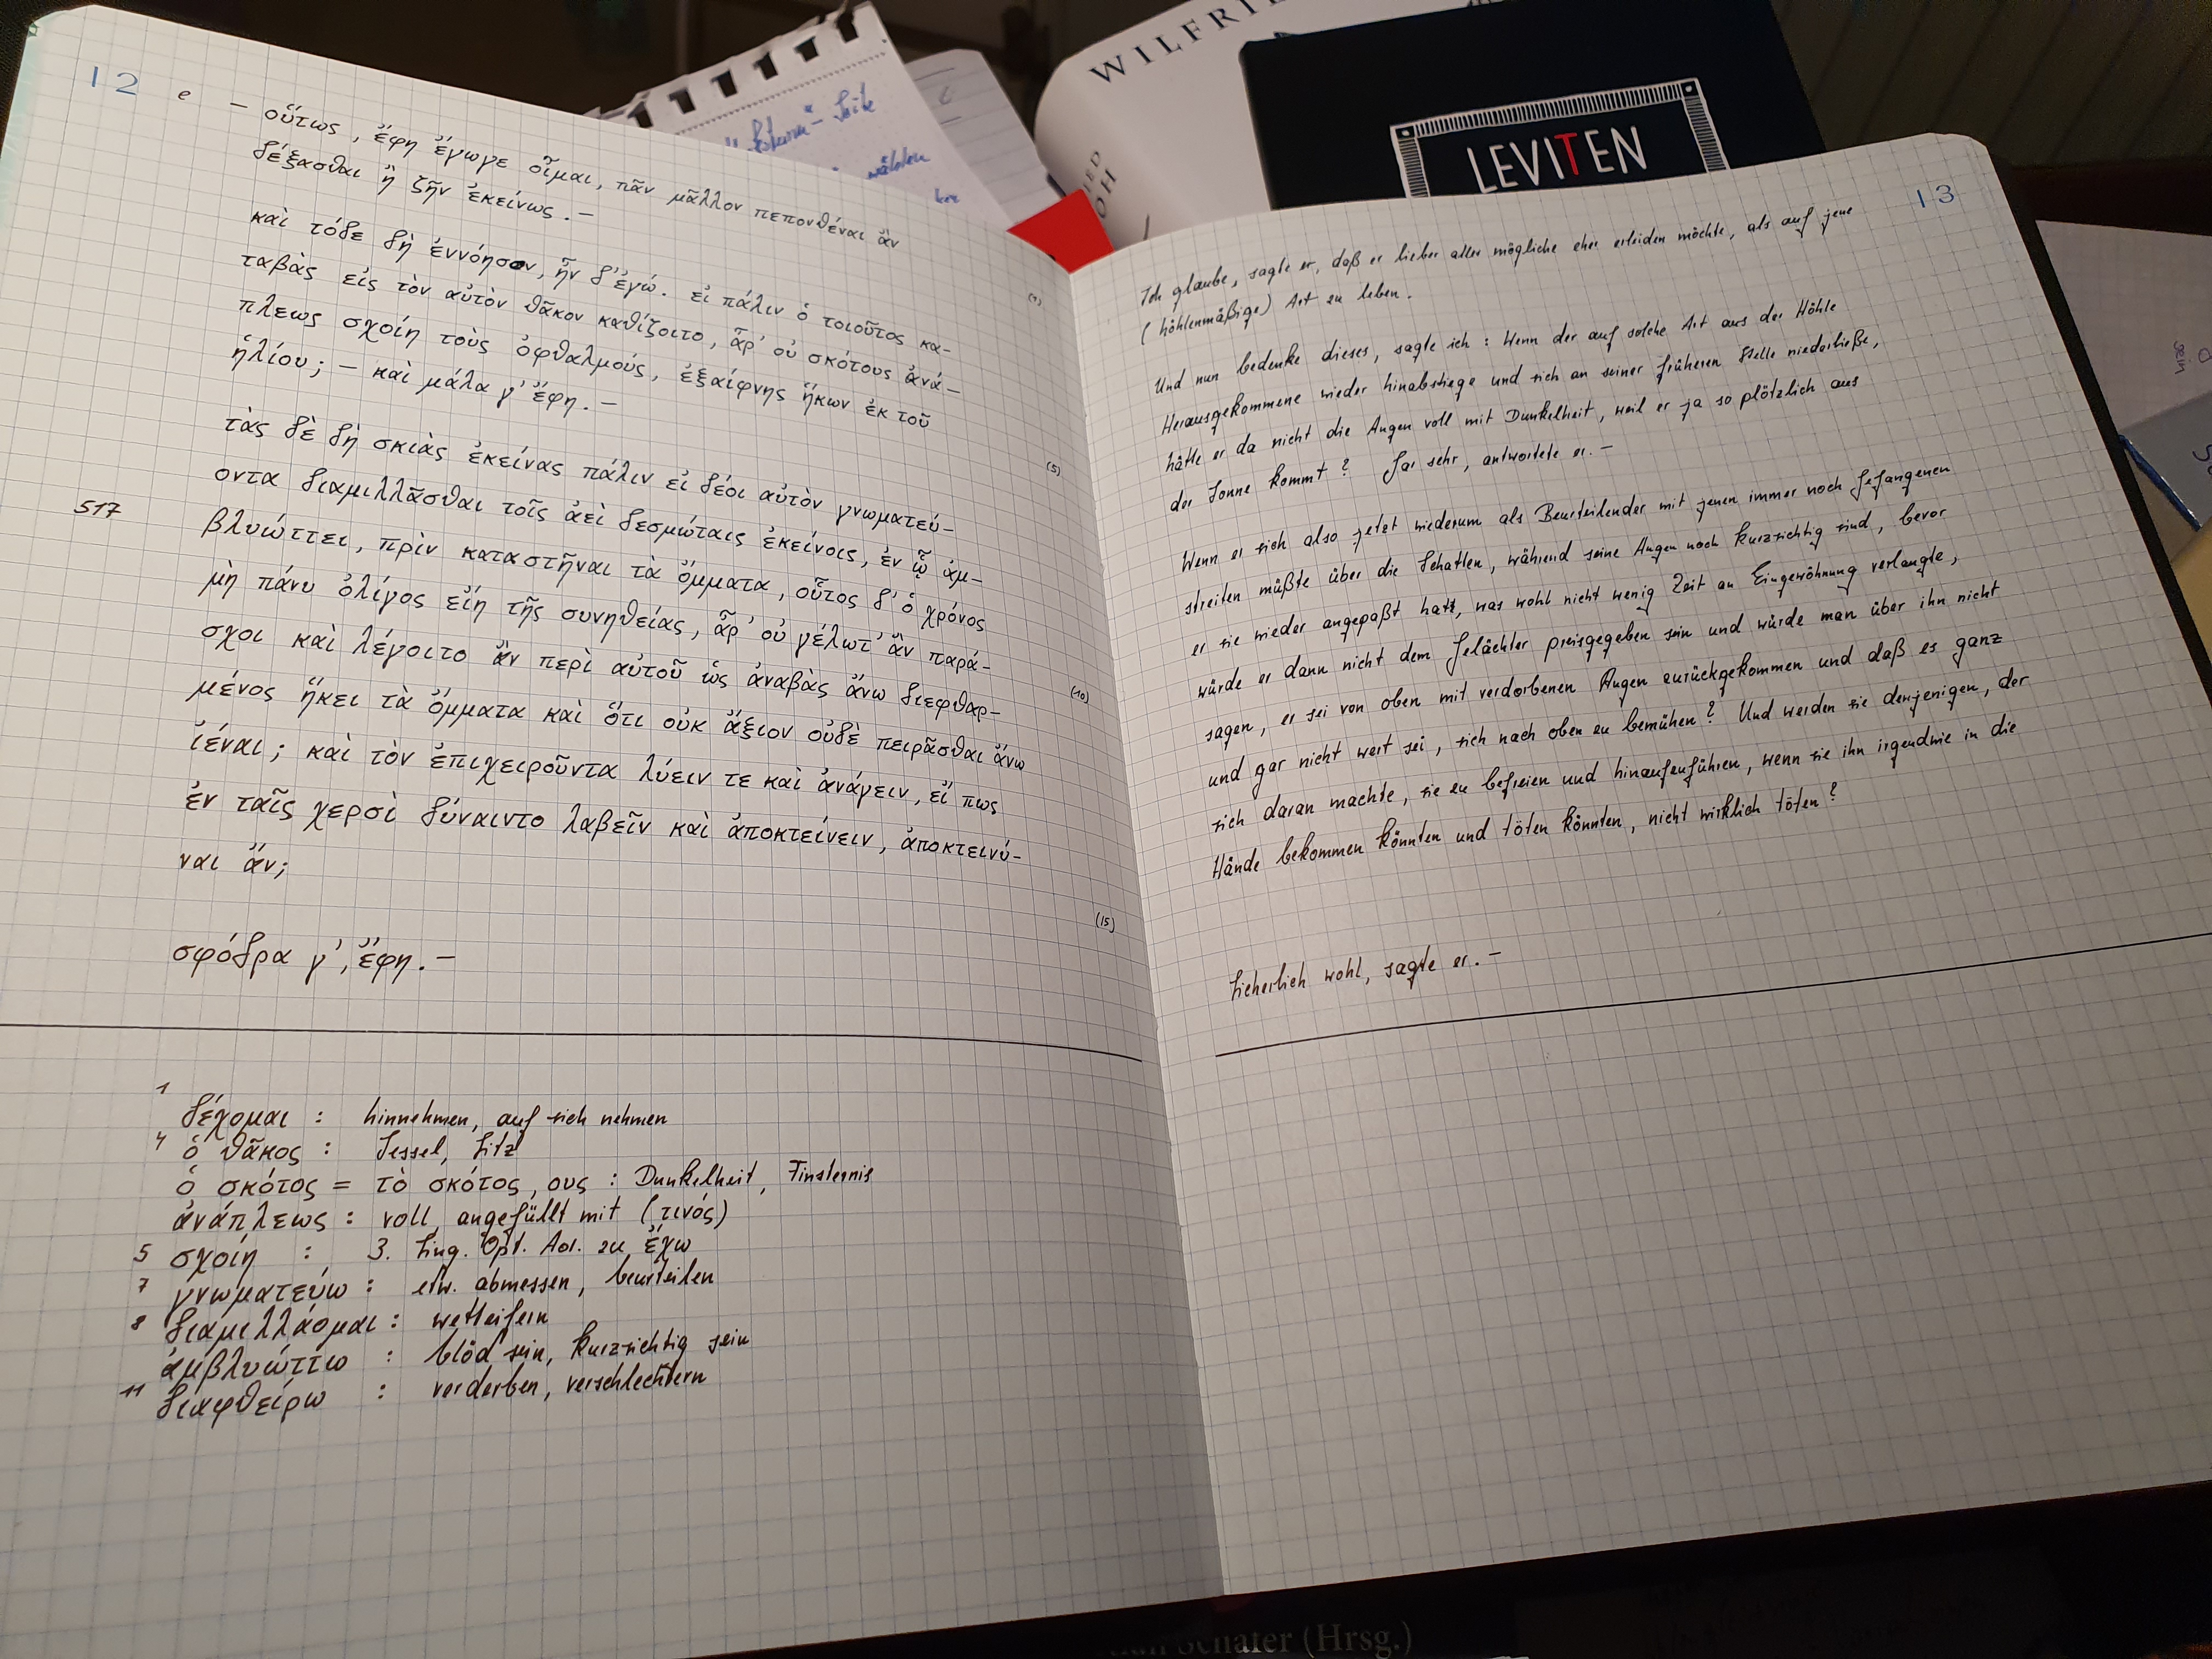 12
e – οὕτως, ἔφη ἔγωγε οἶμαι, πᾶν μᾶλλον πεπονθέναι ἂν
δέξασθαι ἢ ζῆν ἐκείνως. –
καὶ τόδε δὴ ἐννόησον, ἦν δ' ἐγώ. εἰ πάλιν ὁ τοιοῦτος κα-
ταβὰς εἰς τὸν αὐτὸν θᾶκον καθίζοιτο, ἆρ' οὐ σκότους ἀνά-
πλεως σχοίη τοὺς ὀφθαλμούς, ἐξαίφνης ἥκων ἐκ τοῦ
ἡλίου; – καὶ μάλα γ' ἔφη. –
τὰς δὲ δὴ σκιὰς ἐκείνας πάλιν εἰ δέοι αὐτὸν γνωματεύ-
οντα διαμιλλᾶσθαι τοῖς ἀεὶ δεσμώταις ἐκείνοις, ἐν ᾧ ἀμ-
517 βλυώττει, πρὶν καταστῆναι τὰ ὄμματα, οὗτος δ' ὁ χρόνος
μὴ πάνυ ὀλίγος εἴη τῆς συνηθείας, ἆρ' οὐ γέλωτ' ἂν παρά-
σχοι καὶ λέγοιτο ἂν περὶ αὐτοῦ ὡς ἀναβὰς ἄνω διεφθαρ-
μένος ἥκει τὰ ὄμματα καὶ ὅτι οὐκ ἄξιον οὐδὲ πειρᾶσθαι ἄνω
ἰέναι; καὶ τὸν ἐπιχειροῦντα λύειν τε καὶ ἀνάγειν, εἴ πως
ἐν ταῖς χερσὶ δύναιντο λαβεῖν καὶ ἀποκτείνειν, ἀποκτεινύ-
ναι ἄν;
σφόδρα γ', ἔφη. –
(1)
(5)
(10)
(15)
1 δέχομαι : hinnehmen, auf sich nehmen
4 ὁ θᾶκος : Sessel, Sitz
ὁ σκότος = τὸ σκότος, ους : Dunkelheit, Finsternis
ἀνάπλεως : voll, angefüllt mit (τινός)
5 σχοίη : 3. Sing. Opt. Aor. zu ἔχω
7 γνωματεύω : etw. abmessen, beurteilen
8 διαμιλλάομαι : wetteifern
ἀμβλυώττω : blöd sein, kurzsichtig sein
11 διαφθείρω : verderben, verschlechtern
13
Ich glaube, sagte er, daß er lieber alles mögliche eher erleiden möchte, als auf jene
(höhlenmäßige) Art zu leben.
Und nun bedenke dieses, sagte ich : Wenn der auf solche Art aus der Höhle
Herausgekommene wieder hinabstiege und sich an seiner früheren Stelle niederließe,
hätte er da nicht die Augen voll mit Dunkelheit, weil er ja so plötzlich aus
der Sonne kommt ? Gar sehr, antwortete er. –
Wenn er sich also jetzt wiederum als Beurteilender mit jenen immer noch Gefangenen
streiten müßte über die Schatten, während seine Augen noch kurzsichtig sind, bevor
er sie wieder angepaßt hat, was wohl nicht wenig Zeit an Eingewöhnung verlangte,
würde er dann nicht dem Gelächter preisgegeben sein und würde man über ihn nicht
sagen, er sei von oben mit verdorbenen Augen zurückgekommen und daß es ganz
und gar nicht wert sei, sich nach oben zu bemühen ? Und werden sie denjenigen, der
sich daran machte, sie zu befreien und hinaufzuführen, wenn sie ihn irgendwie in die
Hände bekommen könnten und töten könnten, nicht wirklich töten ?
Sicherlich wohl, sagte er. –
WILFRIE
LEVITEN
wählen
(Hrsg.)